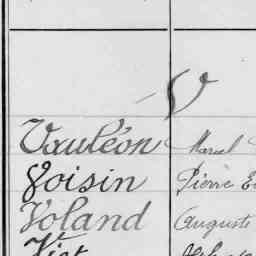 V
Vauléon Marcel
Voisin Pierre
Voland Auguste